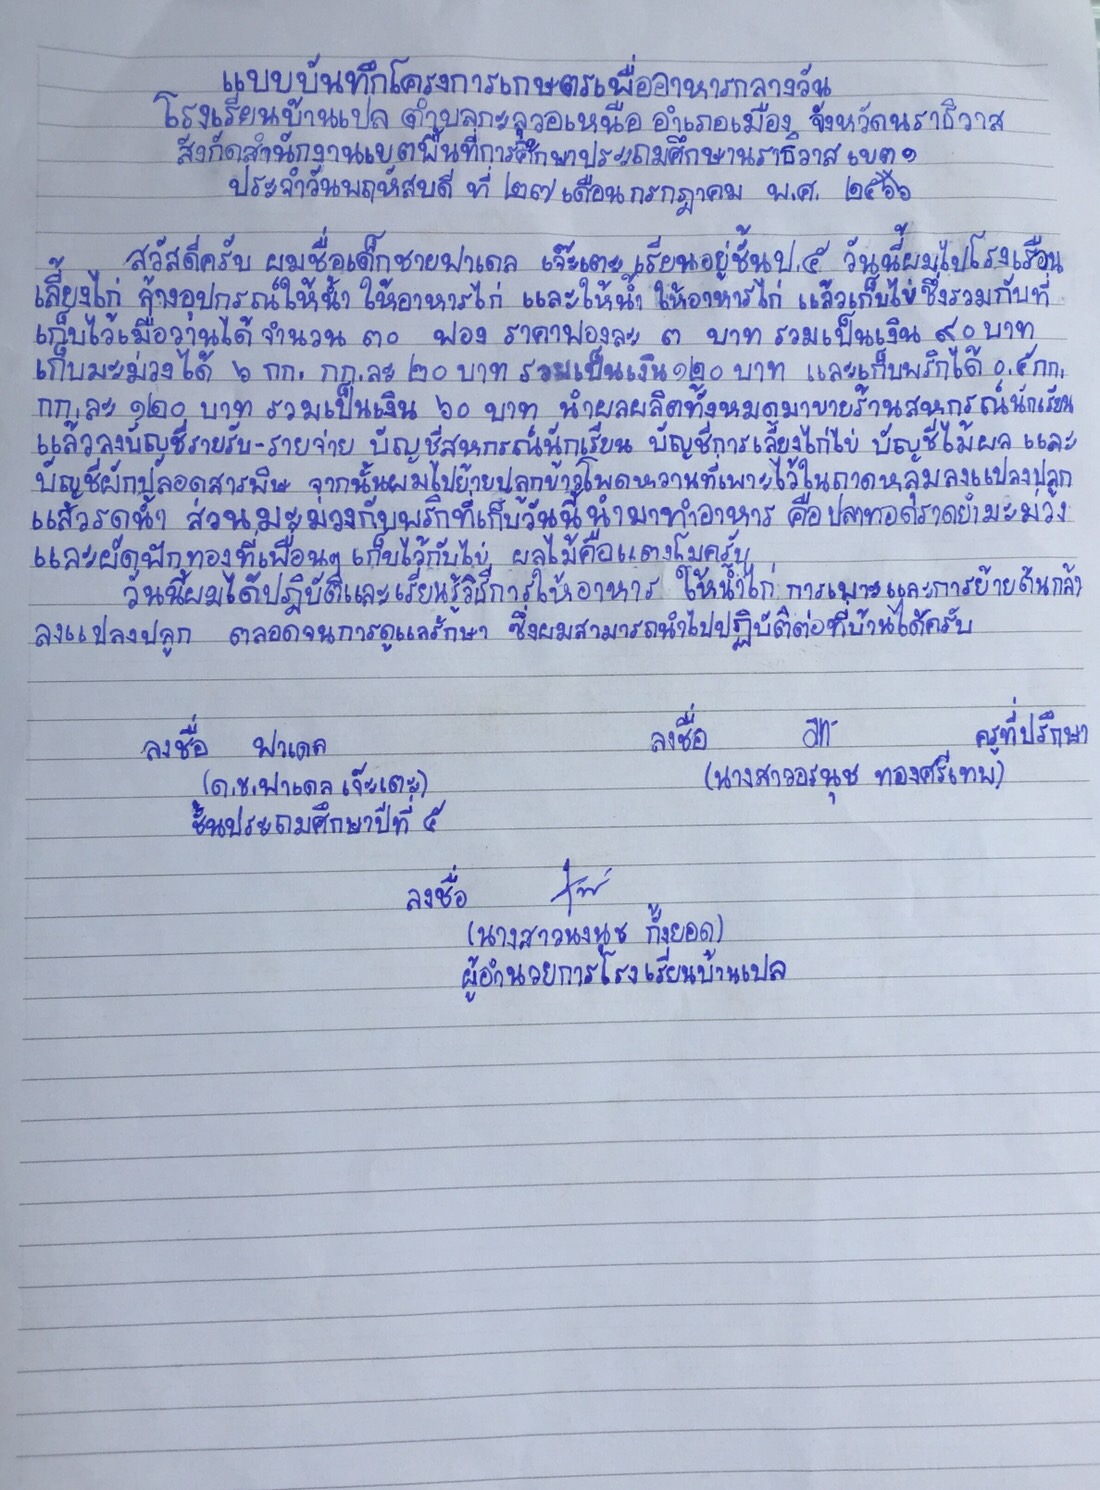 แบบบันทึกโครงการเกษตรเพื่ออาหารกลางวัน
โรงเรียนบ้านเปล ตำบลกะลุวอเหนือ อำเภอเมือง จังหวัดนราธิวาส
สังกัดสำนักงานเขตพื้นที่การศึกษาประถมศึกษานราธิวาส เขต ๑
ประจำวันพฤหัสบดี ที่ ๒๗ เดือน กรกฎาคม พ.ศ. ๒๕๖๖
สวัสดีครับ ผมชื่อเด็กชายฟาเดล เจ๊ะเตะ เรียนอยู่ชั้นป.๕ วันนี้ผมไปโรงเรือน
เลี้ยงไก่ ล้างอุปกรณ์ให้น้ำ ให้อาหารไก่ และให้น้ำ ให้อาหารไก่ แล้วเก็บไข่ ซึ่งรวมกับที่
เก็บไว้เมื่อวานได้ จำนวน ๓๐ ฟอง ราคาฟองละ ๓ บาท รวมเป็นเงิน ๙๐ บาท
เก็บมะม่วงได้ ๖ กก. กก.ละ ๒๐ บาท รวมเป็นเงิน ๑๒๐ บาท และเก็บพริกได้ ๐.๕ กก.
กก.ละ ๑๒๐ บาท รวมเป็นเงิน ๖๐ บาท นำผลผลิตทั้งหมดมาขายร้านสหกรณ์นักเรียน
แล้วลงบัญชีรายรับ-รายจ่าย บัญชีสหกรณ์นักเรียน บัญชีการเลี้ยงไก่ไข่ บัญชีไม้ผล และ
บัญชีผักปลอดสารพิษ จากนั้นผมไปย้ายปลูกข้าวโพดหวานที่เพาะไว้ในถาดหลุมลงแปลงปลูก
แล้วรดน้ำ ส่วนมะม่วงกับพริกที่เก็บวันนี้นำมาทำอาหาร คือปลาทอดราดยำมะม่วง
และผัดฟักทองที่เพื่อนๆ เก็บไว้กับไข่ ผลไม้คือแตงโมครับ
วันนี้ผมได้ปฏิบัติและเรียนรู้วิธีการให้อาหาร ให้น้ำไก่ การเพาะและการย้ายต้นกล้า
ลงแปลงปลูก ตลอดจนการดูแลรักษา ซึ่งผมสามารถนำไปปฏิบัติต่อที่บ้านได้ครับ
ลงชื่อ ฟาเดล ลงชื่อ ครูที่ปรึกษา
(ด.ช.ฟาเดล เจ๊ะเตะ) (นางสาวอรนุช ทองศรีเทพ)
ชั้นประถมศึกษาปีที่ ๕
ลงชื่อ
(นางสาวนงนุช กิ้งยอด)
ผู้อำนวยการโรงเรียนบ้านเปล